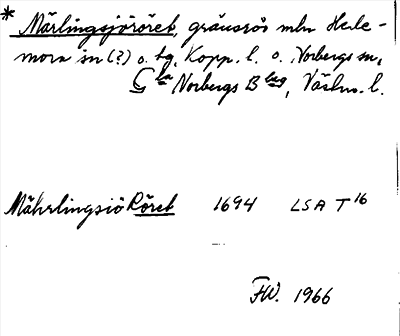 * Märlingsjöröret, gränsrös mln Hede-
mora sn (?) o. tg, Kopp. l. o. Norbergs sn,
G la Norbergs Blag, Västm. l.
Mährlingsiö Röret 1694 LSA T 16
FW. 1966